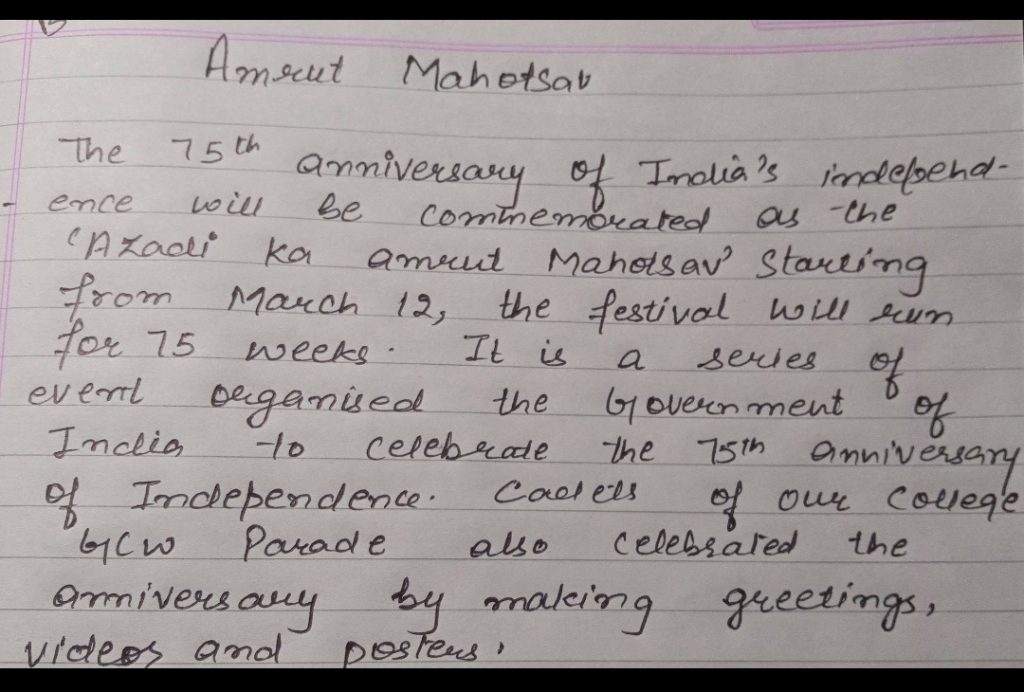 Amrut Mahotsav
The 75th anniversary of India's independ-
ence will be commemorated as the
'Azadi ka amrut Mahotsav' Starting
from March 12, the festival will run
for 75 weeks. It is a series of
event organised the Government of
India to celebrate the 75th anniversary
of Independence. Cadets of our College
GCW Parade also celebrated the
anniversary by making greetings,
videos and posters.